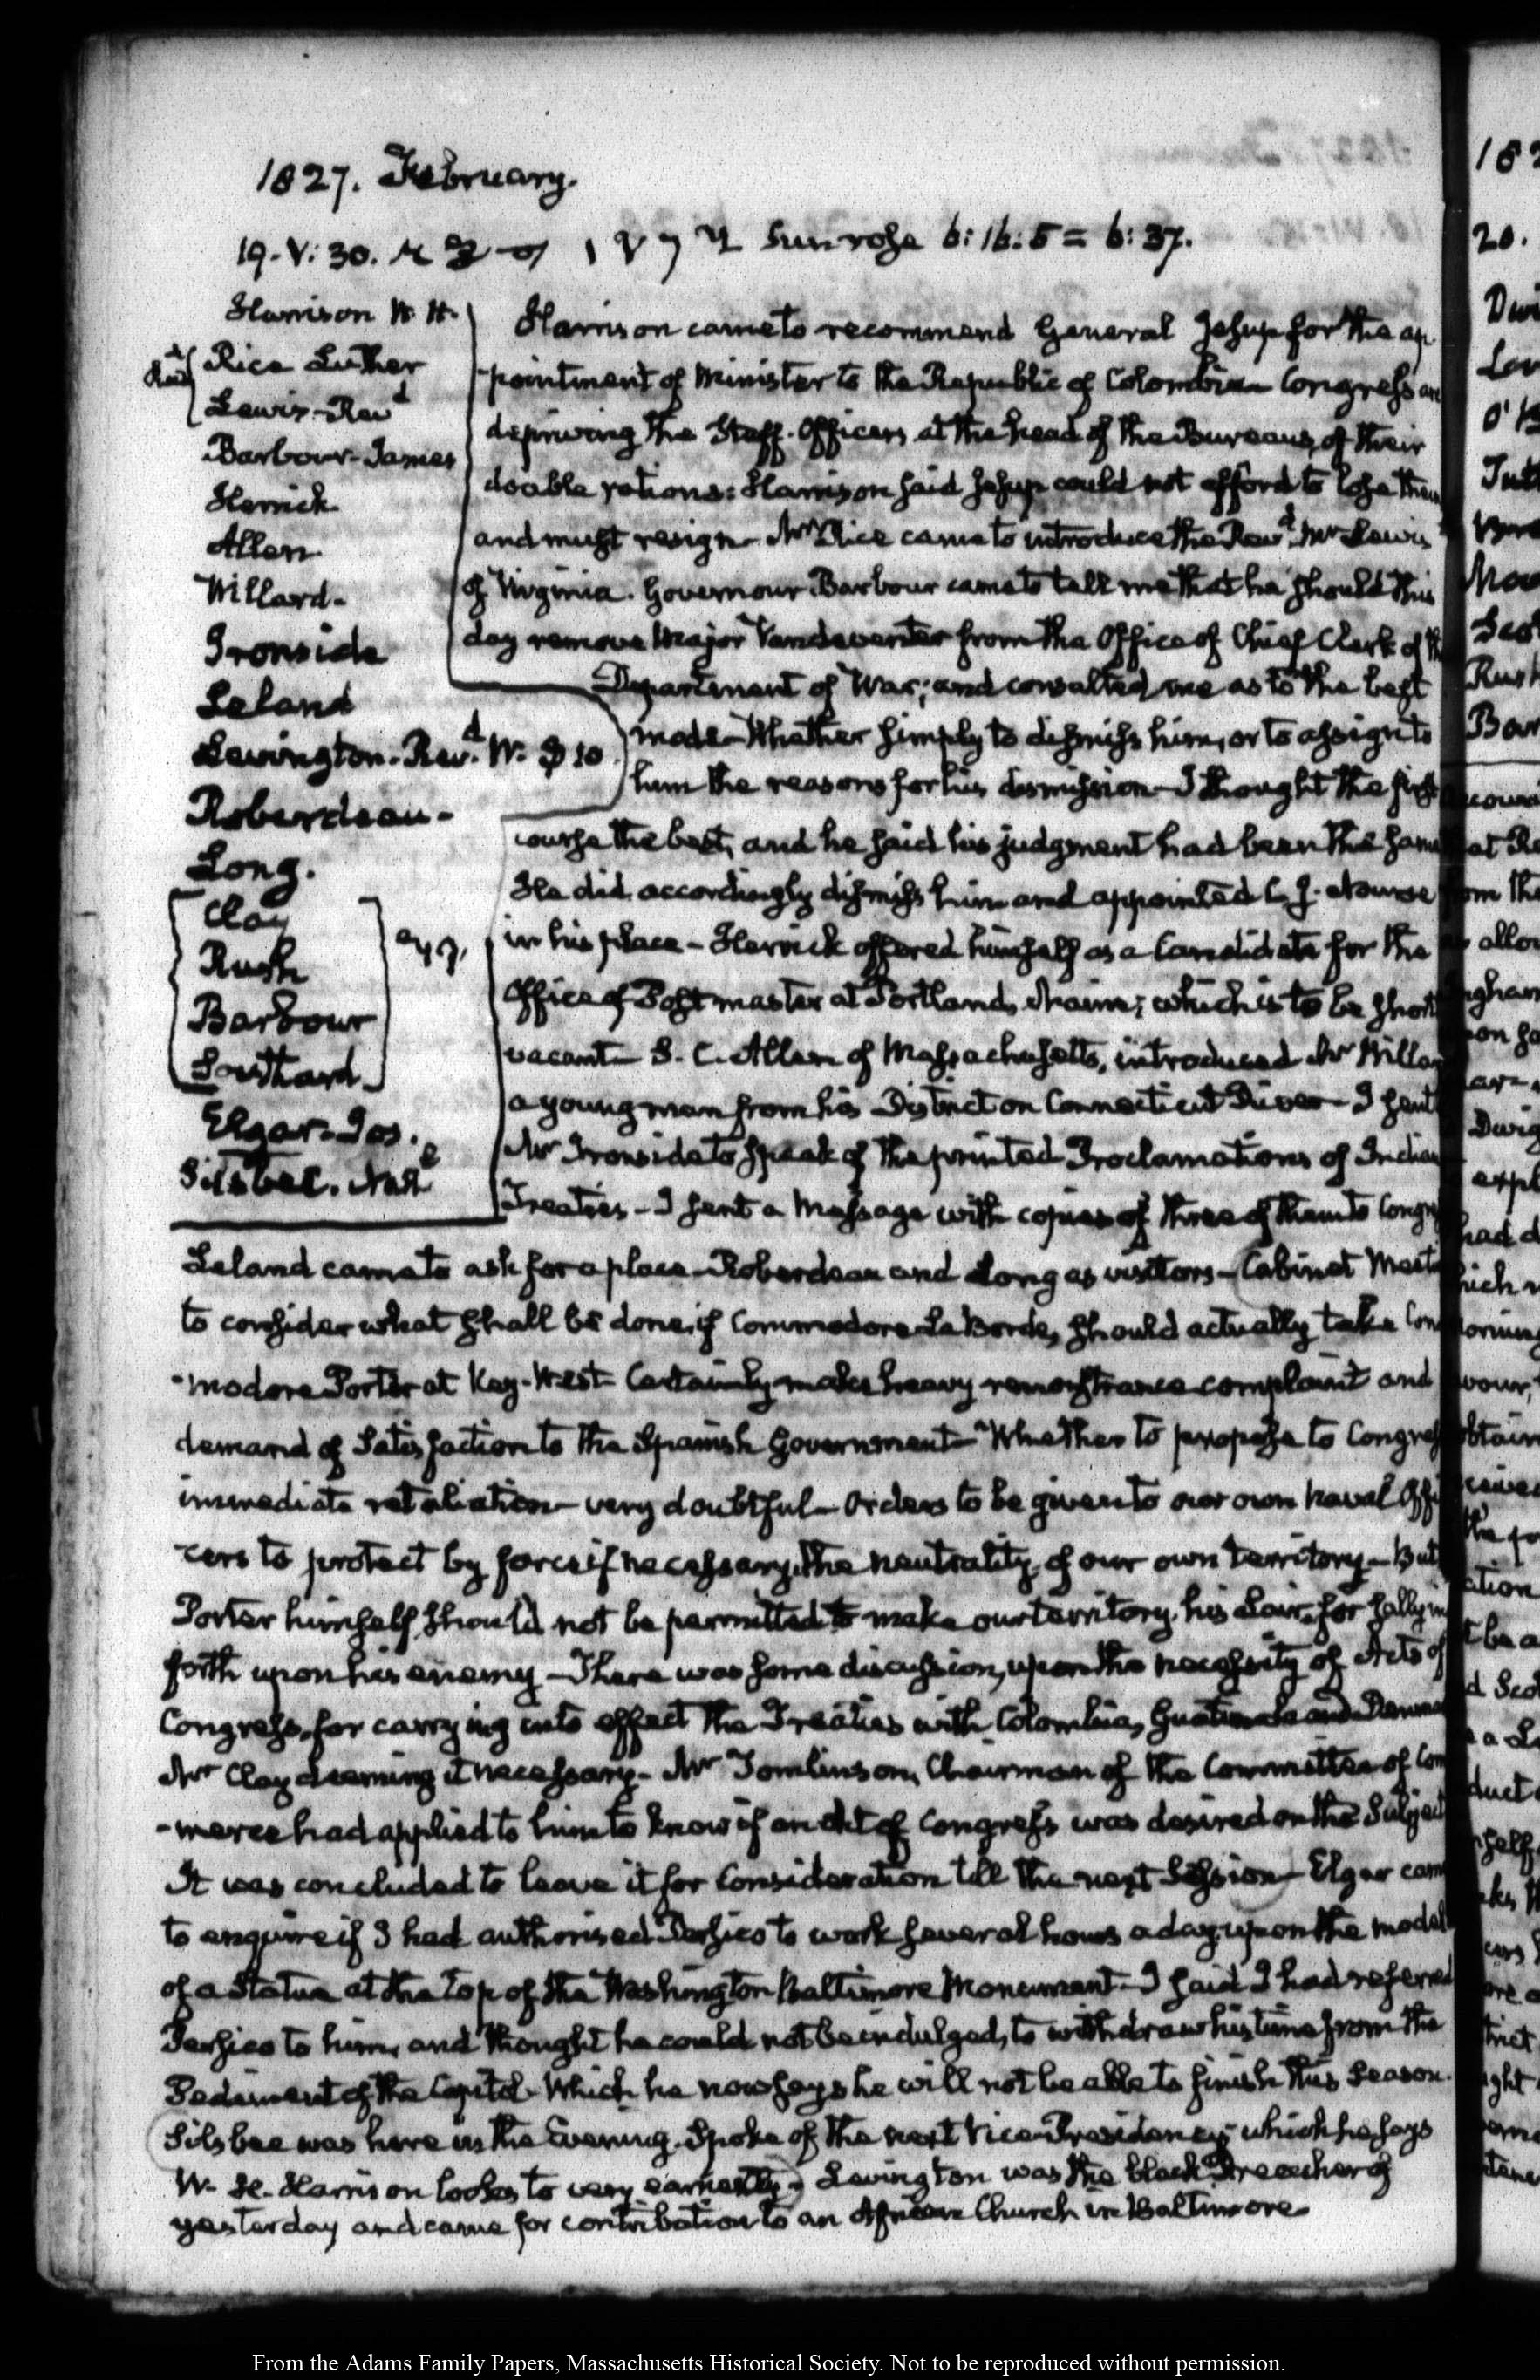 1827. February.
19. V:30. Sun rose 6:16:5 = 6:37.
Harrison W. H.
Rice Luther
Lewis-Revd
Barbour-James
Herrick
Allen
Willard-
Ironside
Leland
Levington-Revd. W. $10
Roberdeau-
Long.
Clay
Rush
Barbour
Southard
Elgar-Jos.
Silsbee. Nathl
Harrison came to recommend General Jesup for the ap
pointment of Minister to the Republic of Colombia- Congress are
depriving the Staff-Officers at the head of the Bureaus, of their
double rations: Harrison said Jesup could not afford to lose them
and must resign- Mr Rice came to introduce the Revd. Mr Lewis
of Virginia. Governour Barbour came to tell me that he should this
day remove Major Vandeventer from the Office of Chief Clerk of the
Department of War; and consulted me as to the best
mode- Whether simply to dismiss him, or to assign to
him the reasons for his dismission- I thought the first
course the best, and he said his judgment had been the same
He did accordingly dismiss him and appointed C. J. Nourse
in his place- Herrick offered himself as a Candidate for the
Office of Postmaster at Portland, Maine; which is to be short
vacant- S. C. Allen of Massachusetts, introduced Mr Willard
a young man from his District on Connecticut River- I sent
Mr Ironside to speak of the printed Proclamations of Indian
Treaties- I sent a Message with copies of three of them to Congress
Leland came to ask for a place- Roberdeau and Long as visitors- Cabinet Meeting
to consider what shall be done, if Commodore LaBorde, should actually take Com
-modore Porter at Key-West- Certainly make heavy remonstrance complaint and
demand of Satisfaction to the Spanish Government- Whether to propose to Congress
immediate retaliation- very doubtful- Orders to be given to our own naval Offi
-cers to protect by force if necessary, the neutrality, of our own territory- But
Porter himself, should not be permitted to make our territory, his Lair, for sallying
forth upon his enemy- There was some discussion, upon the necessity of Acts of
Congress, for carrying into effect the Treaties with Colombia, Guatemala and Denmark
Mr Clay deeming it necessary- Mr Tomlinson, Chairman of the Committee of Com
-merce had applied to him to know if an Act of Congress was desired on the Subject
It was concluded to leave it for Consideration till the next Session- Elgar came
to enquire if I had authorised Persico to work several hours a day, upon the model
of a Statue at the top of the Washington Baltimore Monument- I said I had referred
Persico to him, and thought he could not be indulged, to withdraw his time from the
Pediment of the Capitol- Which he now says he will not be able to finish this Season.
Silsbee was here in the Evening. Spoke of the next Vice-Presidency; which he says
W. H. Harrison looks to very earnestly- Levington was the black Preacher of
yesterday and came for contribution to an African Church in Baltimore-
From the Adams Family Papers, Massachusetts Historical Society. Not to be reproduced without permission.